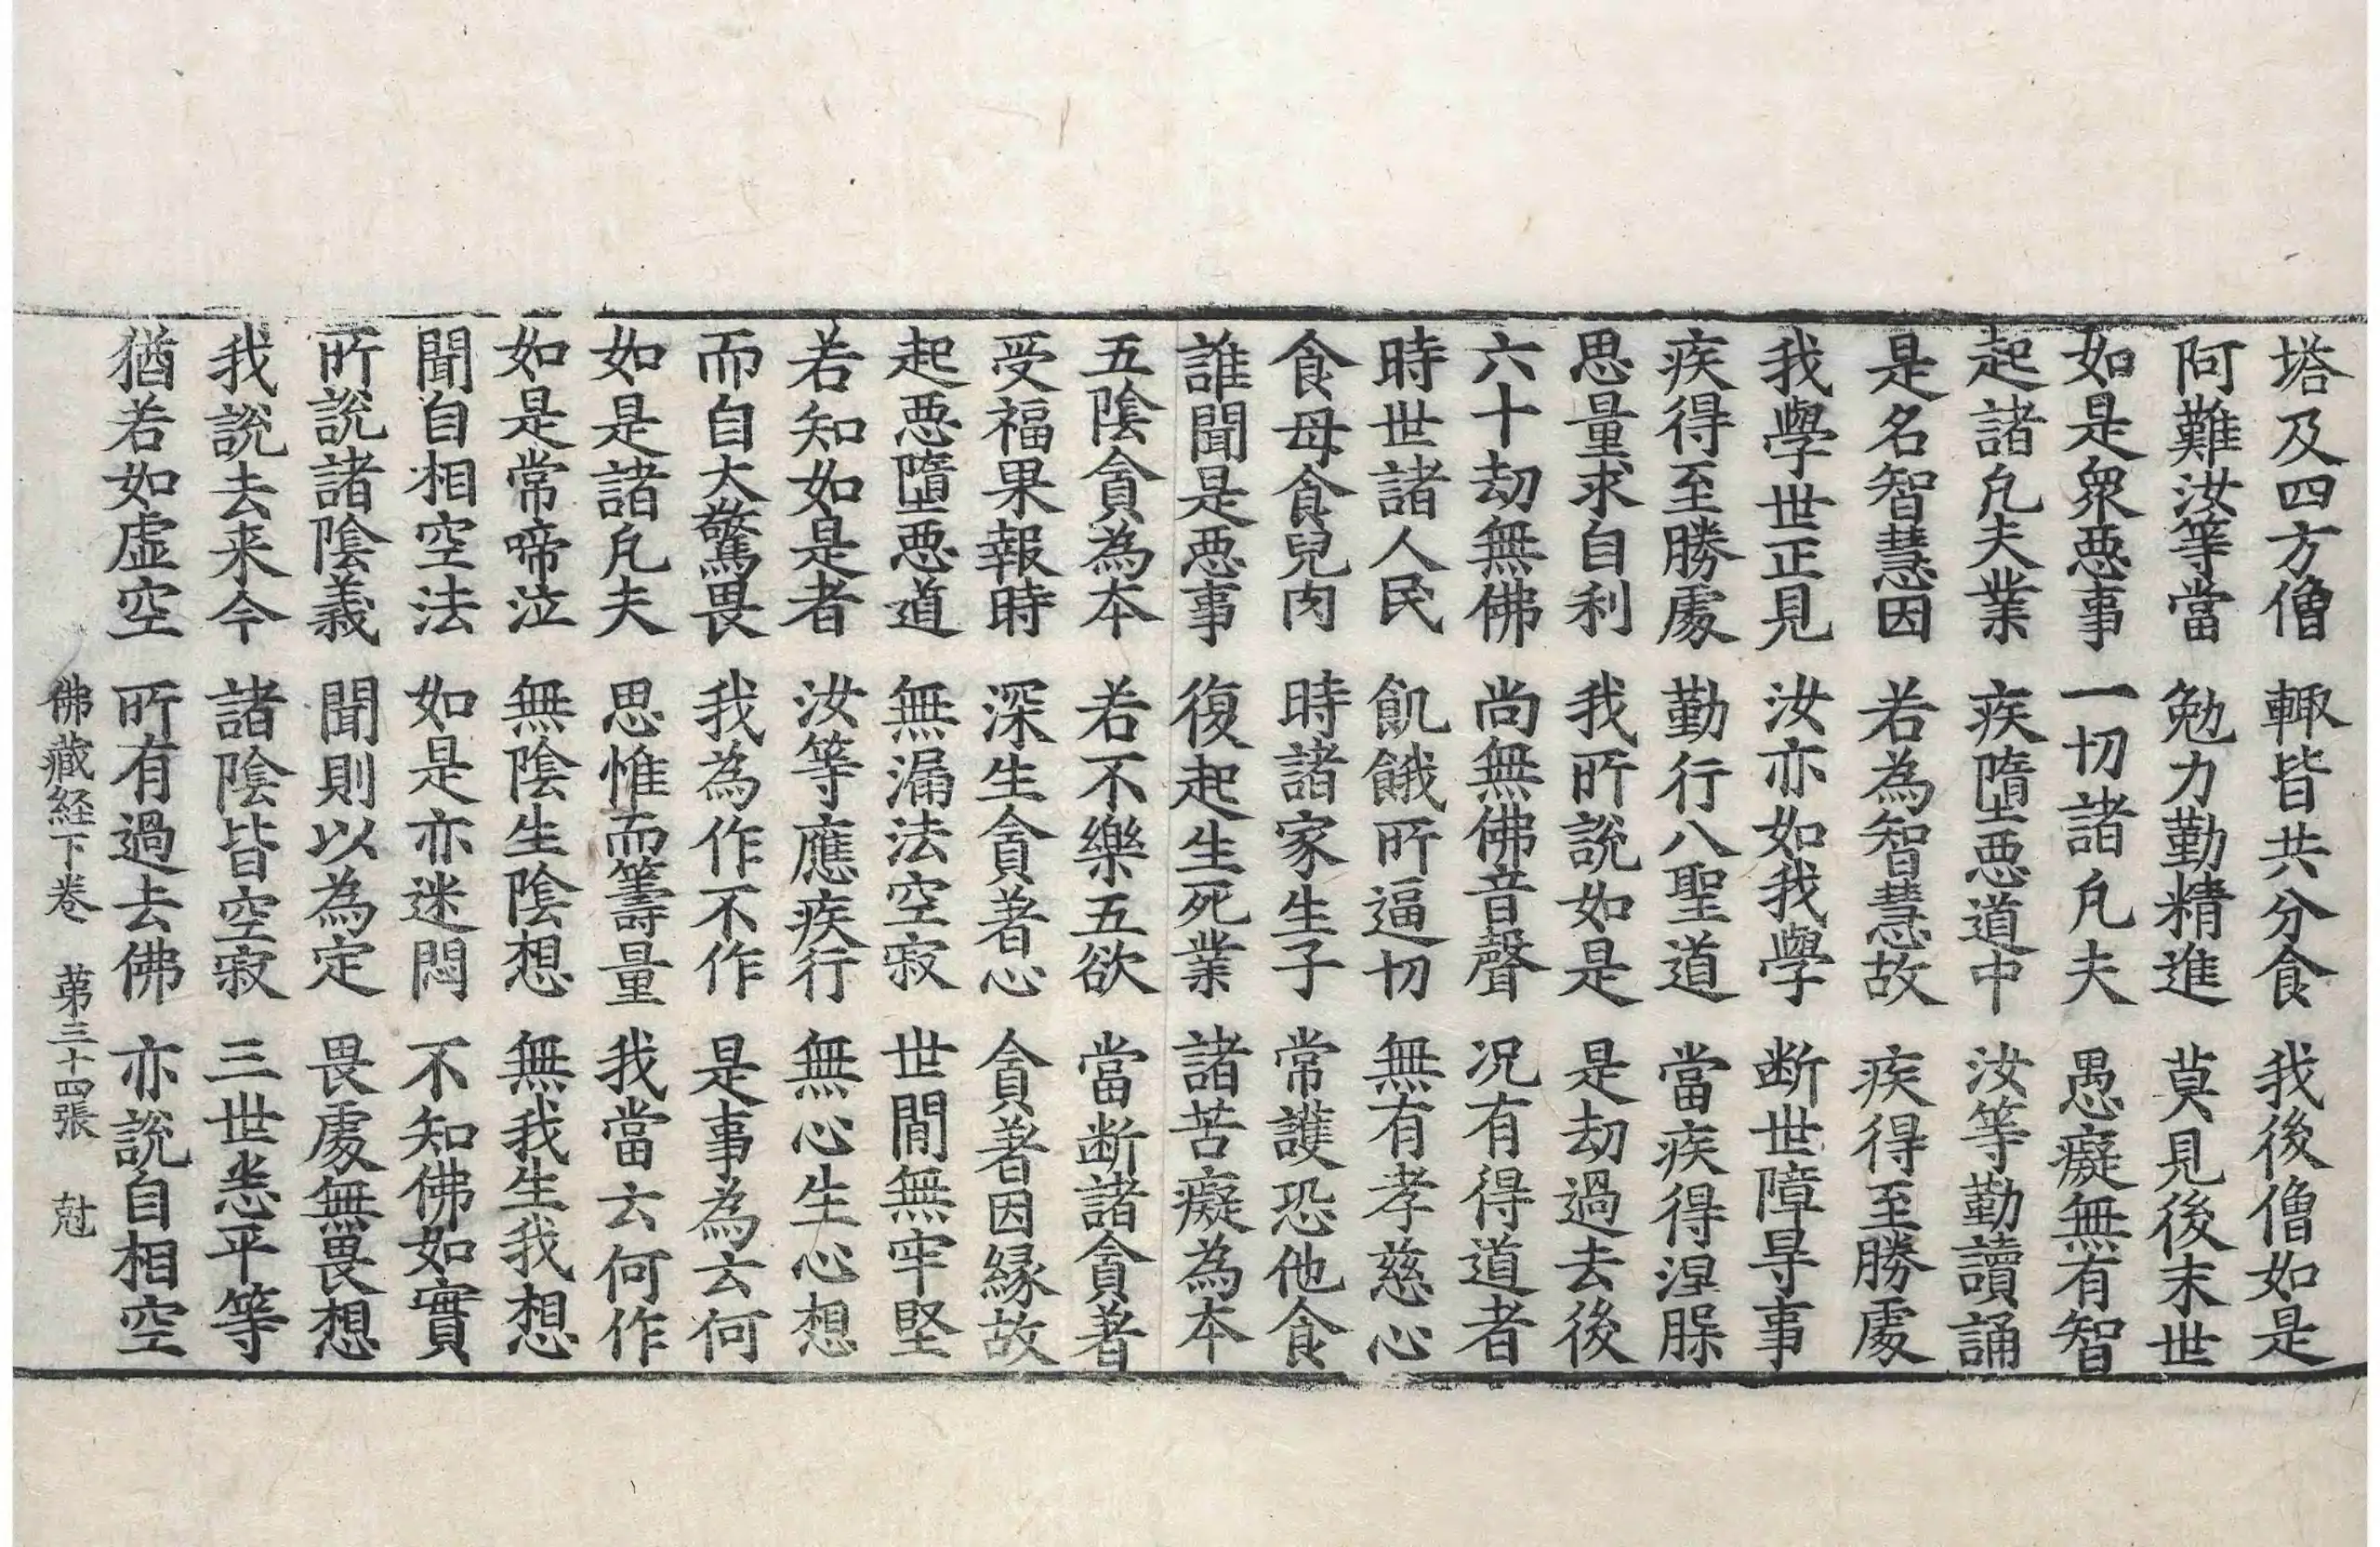 塔及四方僧　輙皆共分食　我後僧如是
阿難汝等當　勉力勤精進　莫見後末世
如是衆惡事　一切諸凡夫　愚癡無有智
起諸凡夫業　疾墮惡道中　汝等勤讀誦
是名智慧因　若為智慧故　疾得至勝處
我學世正見　汝亦如我學　断世障㝵事
疾得至勝處　勤行八聖道　當疾得涅脲
思量求自利　我所說如是　是劫過去後
六十劫無佛　尚無佛音聲　況有得道者
時世諸人民　飢餓所逼切　無有孝慈心
食母食兒肉　時諸家生子　常護恐他食
誰聞是惡事　復起生死業　諸苦癡為本
五陰貪為本　若不樂五欲　當断諸貪著
受福果報時　深生貪著心　貪著因緣故
起惡墮惡道　無漏法空寂　世間無牢堅
若知如是者　汝等應疾行　無心生心想
而自大驚畏　我為作不作　是事為云何
如是諸凡夫　思惟而籌量　我當云何作
如是常啼泣　無陰生陰想　無我生我想
聞自相空法　如是亦迷悶　不知佛如實
所說諸陰義　聞則以為定　畏處無畏想
我說去来今　諸陰皆空寂　三世悉平等
猶若如虛空　所有過去佛　亦說自相空
佛藏経下卷　第三十四張　尅